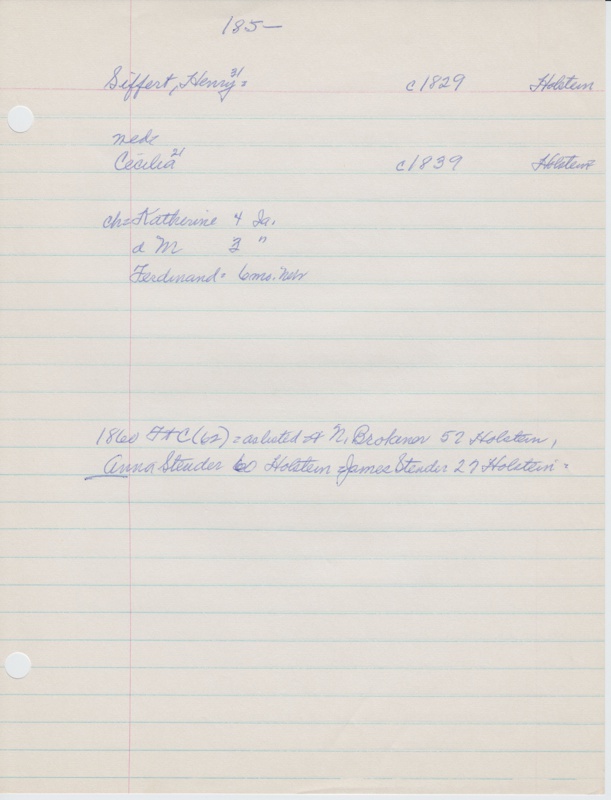 185—
Siffert, Henry 31 = c1829 Holstein
Cecilia 21 c1839 Holstein
ch= Katherine 4 Ia.
d M 3 "
Ferdinand = 6 mo. Nebr
1860 (62) = as listed + N. 57 Holstein,
Anna Stender 60 Holstein = James Stender 27 Holstein =